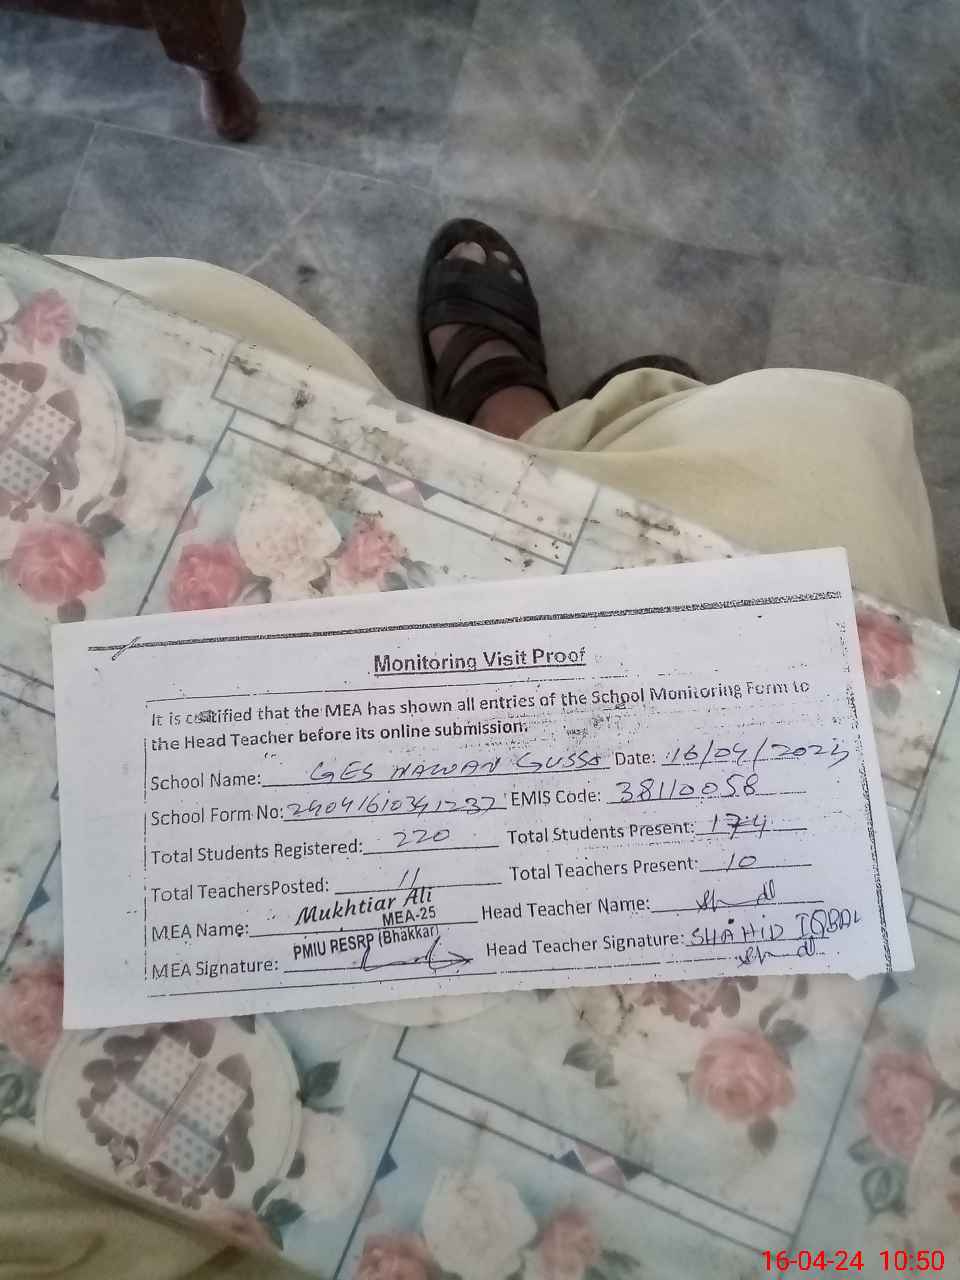 Monitoring Visit Proof
It is certified that the MEA has shown all entries of the School Monitoring Form to
the Head Teacher before its online submission.
School Name: GES NAWAN GUSSO Date: 16/04/2024
School Form No: EMIS Code: 38110058
Total Students Registered: 220 Total Students Present: 174
Total TeachersPosted: 11 Total Teachers Present: 10
MEA Name: Mukhtiar Ali Head Teacher Name:
MEA-25
PMIU RESRP (Bhakkar)
MEA Signature: Head Teacher Signature: SHAHID IQBAL
16-04-24 10:50